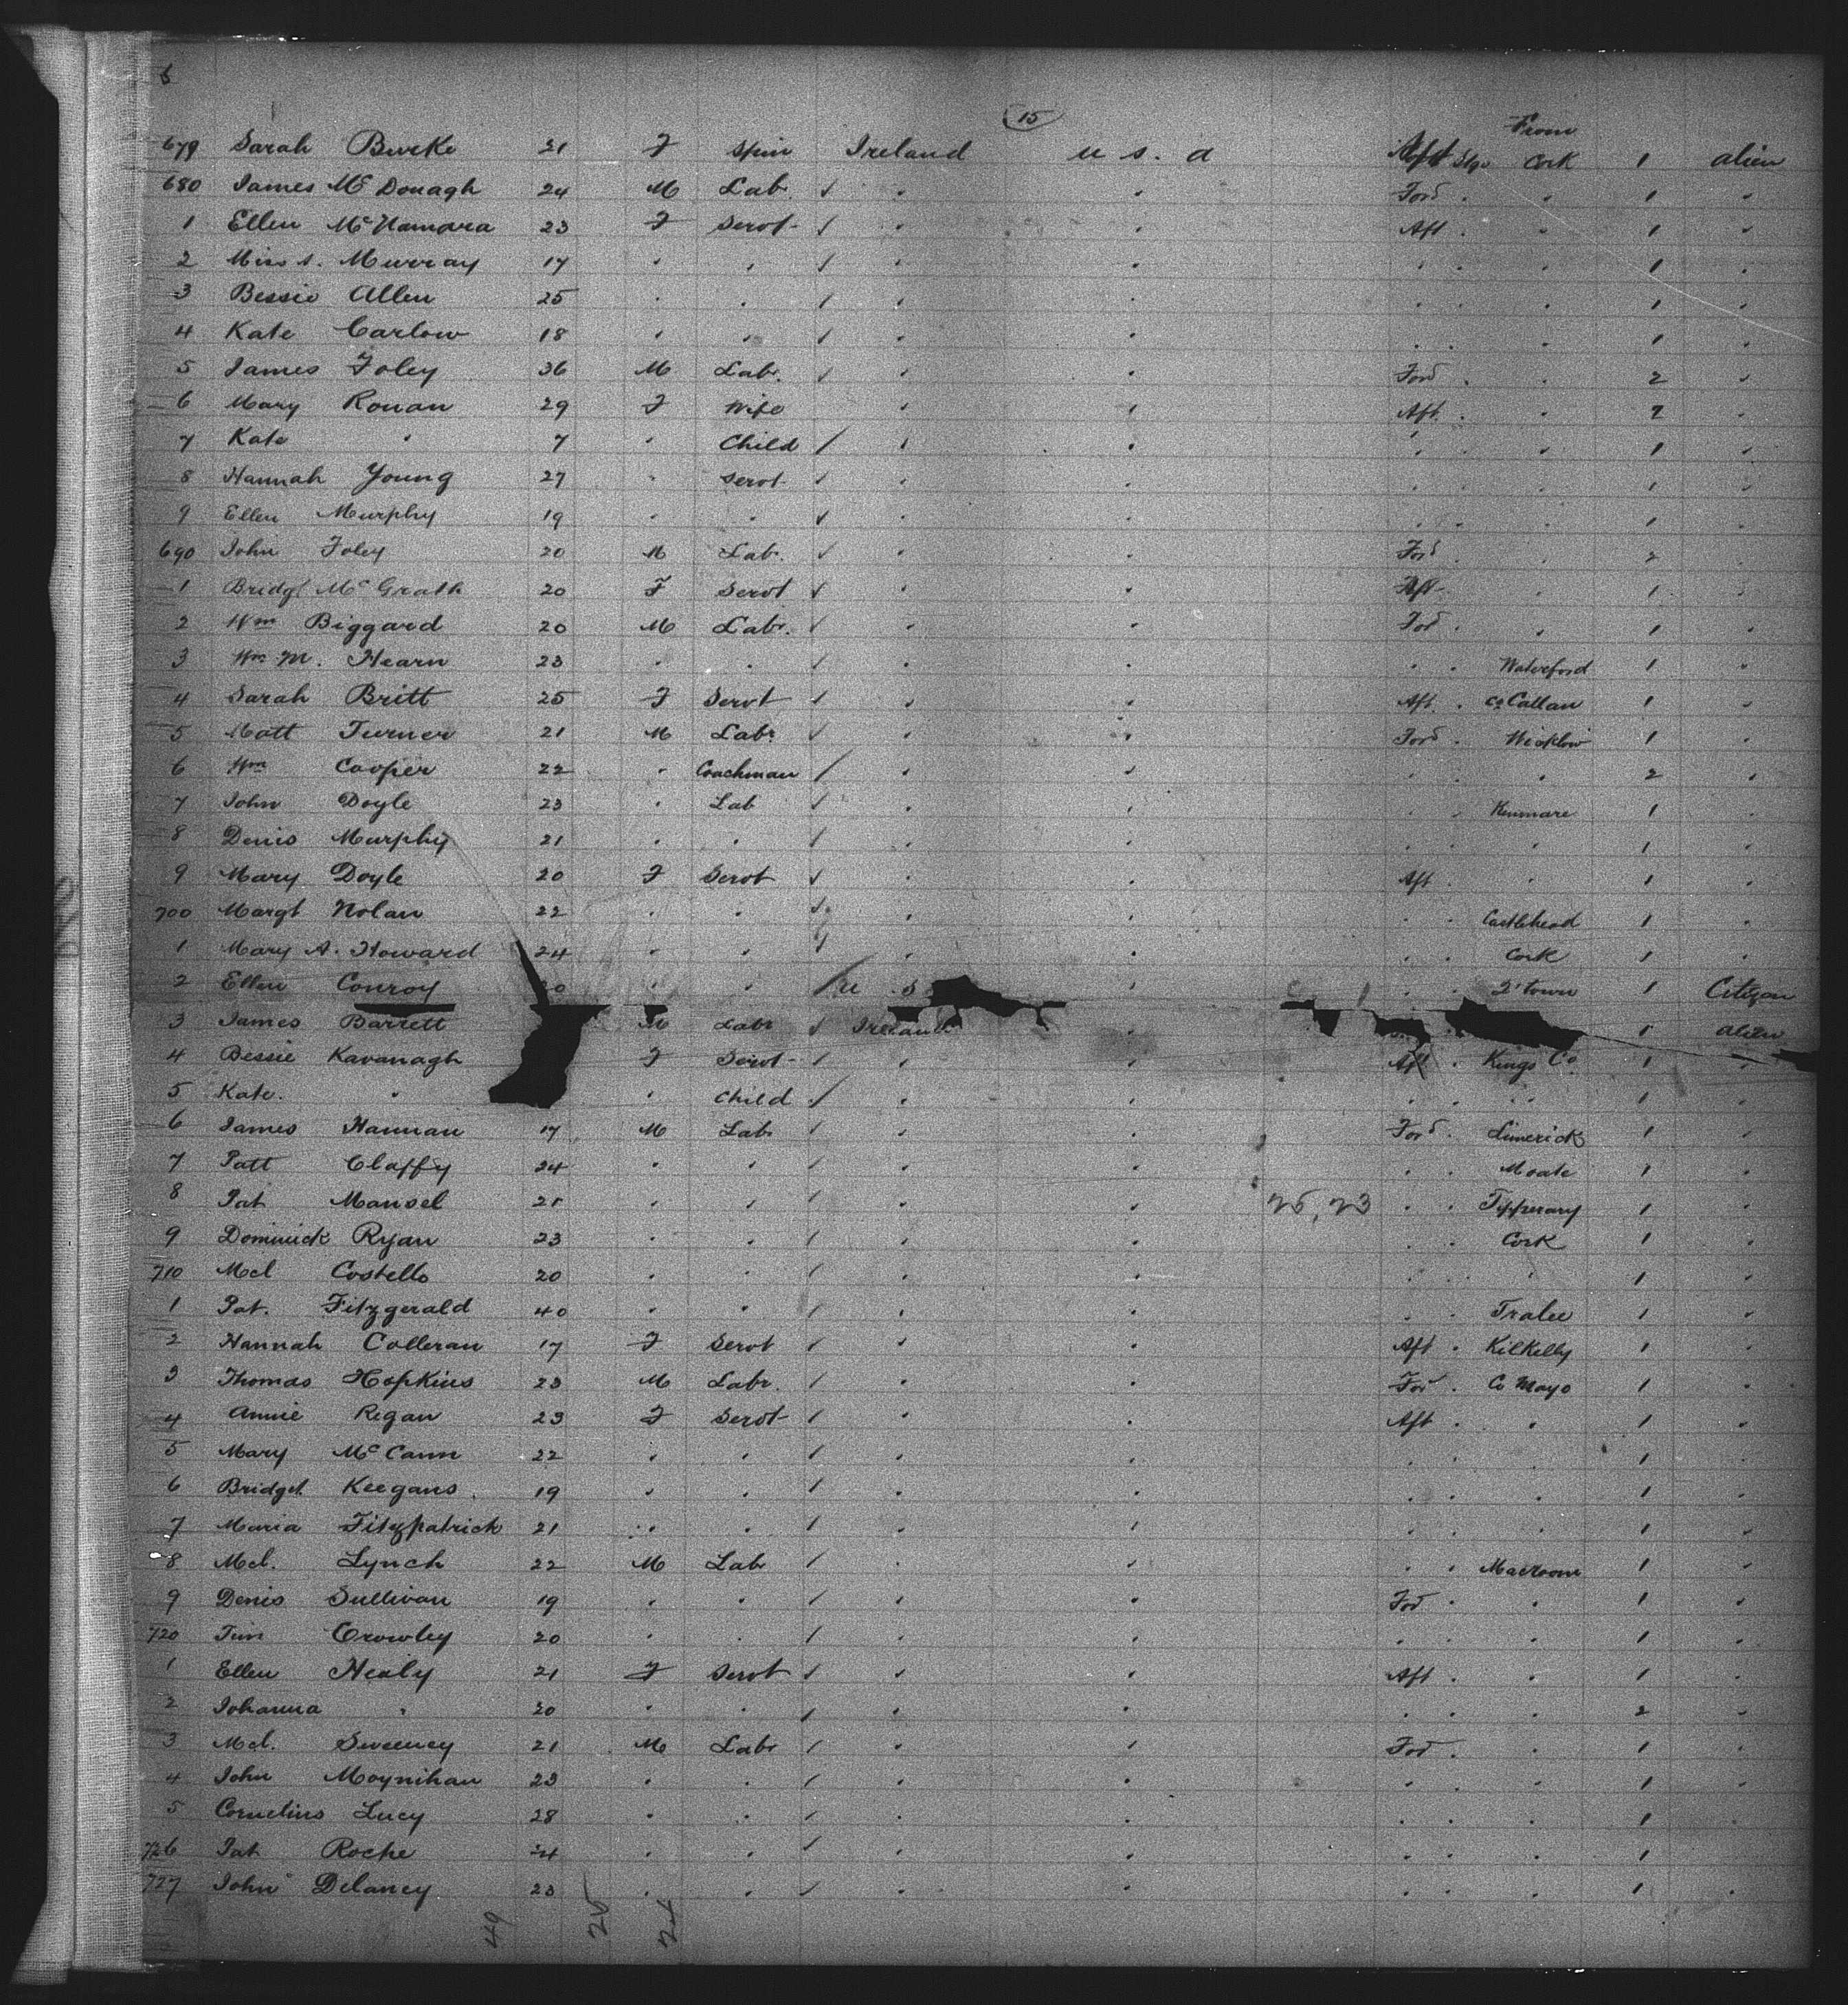 6
15
From
679 Sarah Burke 21 F Spin Ireland U S. A Aft Stge Cork 1 alien
680 James McDonagh 24 M Lab. √ " " Ford . " 1 "
1 Ellen McNamara 23 F Servt √ " " Aft . " 1 "
2 Miss A. Murray 17 " " √ " " " . " 1 "
3 Bessie Allen 25 " " / " " " . " 1 "
4 Kate Carlow 18 " " / " " " . " 1 "
5 James Foley 36 M Lab. √ " " Ford . " 2 "
6 Mary Ronan 29 F Wife " " Aft. . " 2 "
7 Kate " 7 " Child / " " " . " 1 "
8 Hannah Young 27 " Servt √ " " " . " 1 "
9 Ellen Murphy 19 " " √ " " " . " 1 "
690 John Foley 20 M Lab. √ " " Ford " 2 "
1 Bridgt McGrath 20 F Servt √ " " Aft " 1 "
2 Wm Biggard 20 M Labr. √ " " Ford . " 1 "
3 Wm M. Hearn 23 " " / " " " . Waterford 1 "
4 Sarah Britt 25 F Servt / " " Aft . Co Callan 1 "
5 Matt Turner 21 M Labr √ " " Ford . Wicklow 1 "
6 Wm Cooper 22 " Coachman / " " " . " 2 "
7 John Doyle 23 " Lab √ " " " . Kenmare 1 "
8 Denis Murphy 21 " " / " " " . " 1 "
9 Mary Doyle 20 F Servt √ " " Aft . " 1 "
700 Margt Nolan 22 " " √ " " " . Castlehead 1 "
1 Mary A. Howard 24 " " √ " " " . Cork 1 "
2 Ellen Conroy " " / U . S " " . Q'town 1 Citizen
3 James Barrett M Labr √ Ireland " 1 alien
4 Bessie Kavanagh F Servt / " " Aft . Kings Co. 1 "
5 Kate. " " Child / " " " . " 1 "
6 James Hannan 17 M Lab / " " Ford . Limerick 1 "
7 Patt Claffy 24 " " / " " " . Moate 1 "
8 Pat Mansel 21 " " / " " 25, 23 " . Tipperary 1 "
9 Dominick Ryan 23 " " / " " " . Cork 1 "
710 Mcl Costello 20 " " / " " " . " 1 "
1 Pat. Fitzgerald 40 " " / " " " . Tralee 1 "
2 Hannah Colleran 17 F Servt / " " Aft . Kilkelly 1 "
3 Thomas Hopkins 23 M Labr. / " " Ford . Co Mayo 1 "
4 Annie Regan 23 F Servt / " " Aft . " 1 "
5 Mary McCann 22 " " / " " " . " 1 "
6 Bridget Keegans 19 " " / " " " . " 1 "
7 Maria Fitzpatrick 21 " " / " " " . " 1 "
8 Mcl. Lynch 22 M Lab / " " " . Macroom 1 "
9 Denis Sullivan 19 " " / " " Ford . " 1 "
720 Tim Crowley 20 " " / " " " . " 1 "
1 Ellen Healy 21 F Servt / " " Aft . " 1 "
2 Johanna " 20 " " / " " " . " 2 "
3 Mcl. Sweeney 21 M Labr / " " Ford . " 1 "
4 John Moynihan 23 " " / " " " . " 1 "
5 Cornelius Lucy 28 " " / " " " . " 1 "
726 Pat Roche " " / " " " . " 1 "
727 John Delaney 23 " " / " " " . " 1 "
49 25 24